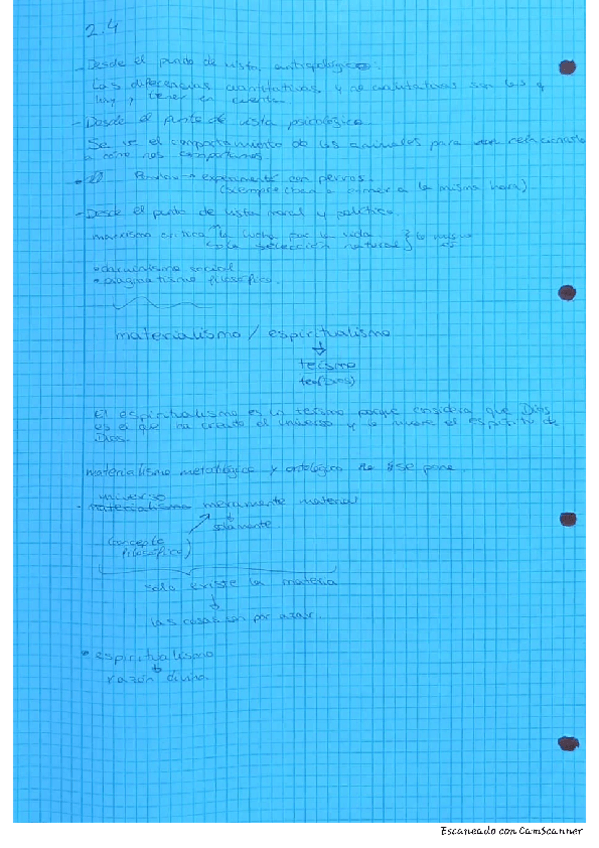 2.4
- Desde el punto de vista antropológico.
Las diferencias cuantitativas y no cualitativas son las q
hay q tener en cuenta.
- Desde el punto de vista psicológico.
Se ve el comportamiento de los animales para relacionarlo
a como nos comportamos
Pavlov → experimento con perros.
(siempre iban a comer a la misma hora)
- Desde el punto de vista moral y político.
marxismo critica la lucha por la vida
la selección natural } lo mismo
• darwinismo social
• pragmatismo filosófico.
materialismo / espiritualismo
↓
teísmo
teo (Dios)
El espiritualismo es un teísmo porque considera que Dios
es el que ha creado el universo y lo mueve el espíritu de
Dios.
materialismo metodológico y ontológico no se pone.
universo
- materialismo meramente material
↓
solamente
(concepto
filosófico)
solo existe la materia
↓
las cosas son por azar.
• espiritualismo
↓
razón divina
Escaneado con CamScanner